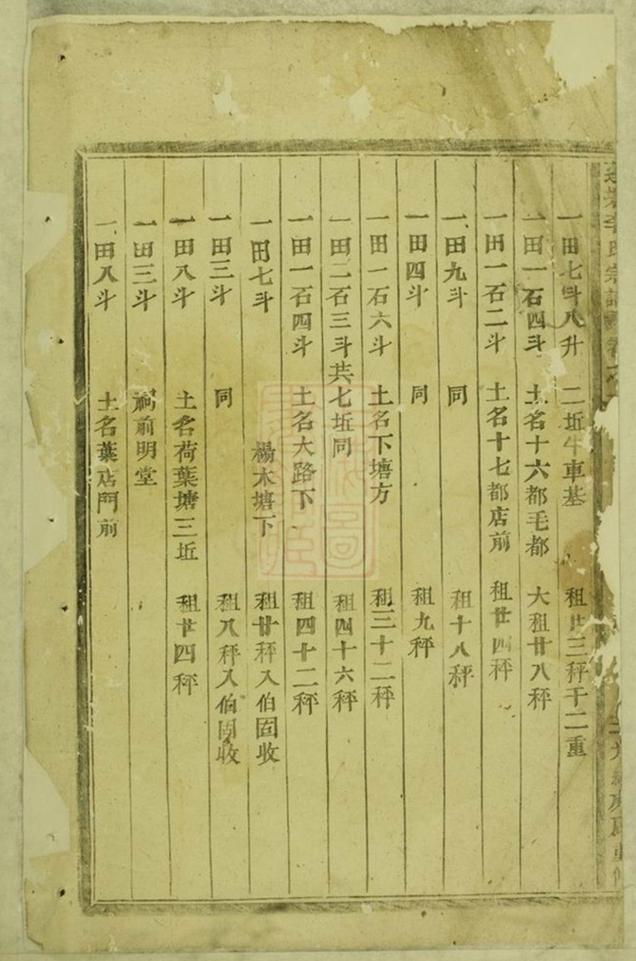 李氏宗譜
一田七斗八升 二坵牛車基 租廿三秤干二重
一田一石四斗 土名十六都毛都 大租廿八秤
一田一石二斗 土名十七都店前 租廿四秤
一田九斗 同 租十八秤
一田四斗 同 租九秤
一田一石六斗 土名下塘方 租三十二秤
一田二石三斗共七坵同 租四十六秤
一田一石四斗 土名大路下 租四十二秤
一田七斗 楊木塘下 租廿秤入伯固收
一田三斗 同 租八秤入伯固收
一田八斗 土名荷葉塘三坵 租廿四秤
一田三斗 祠前明堂
一田八斗 土名葉店門前